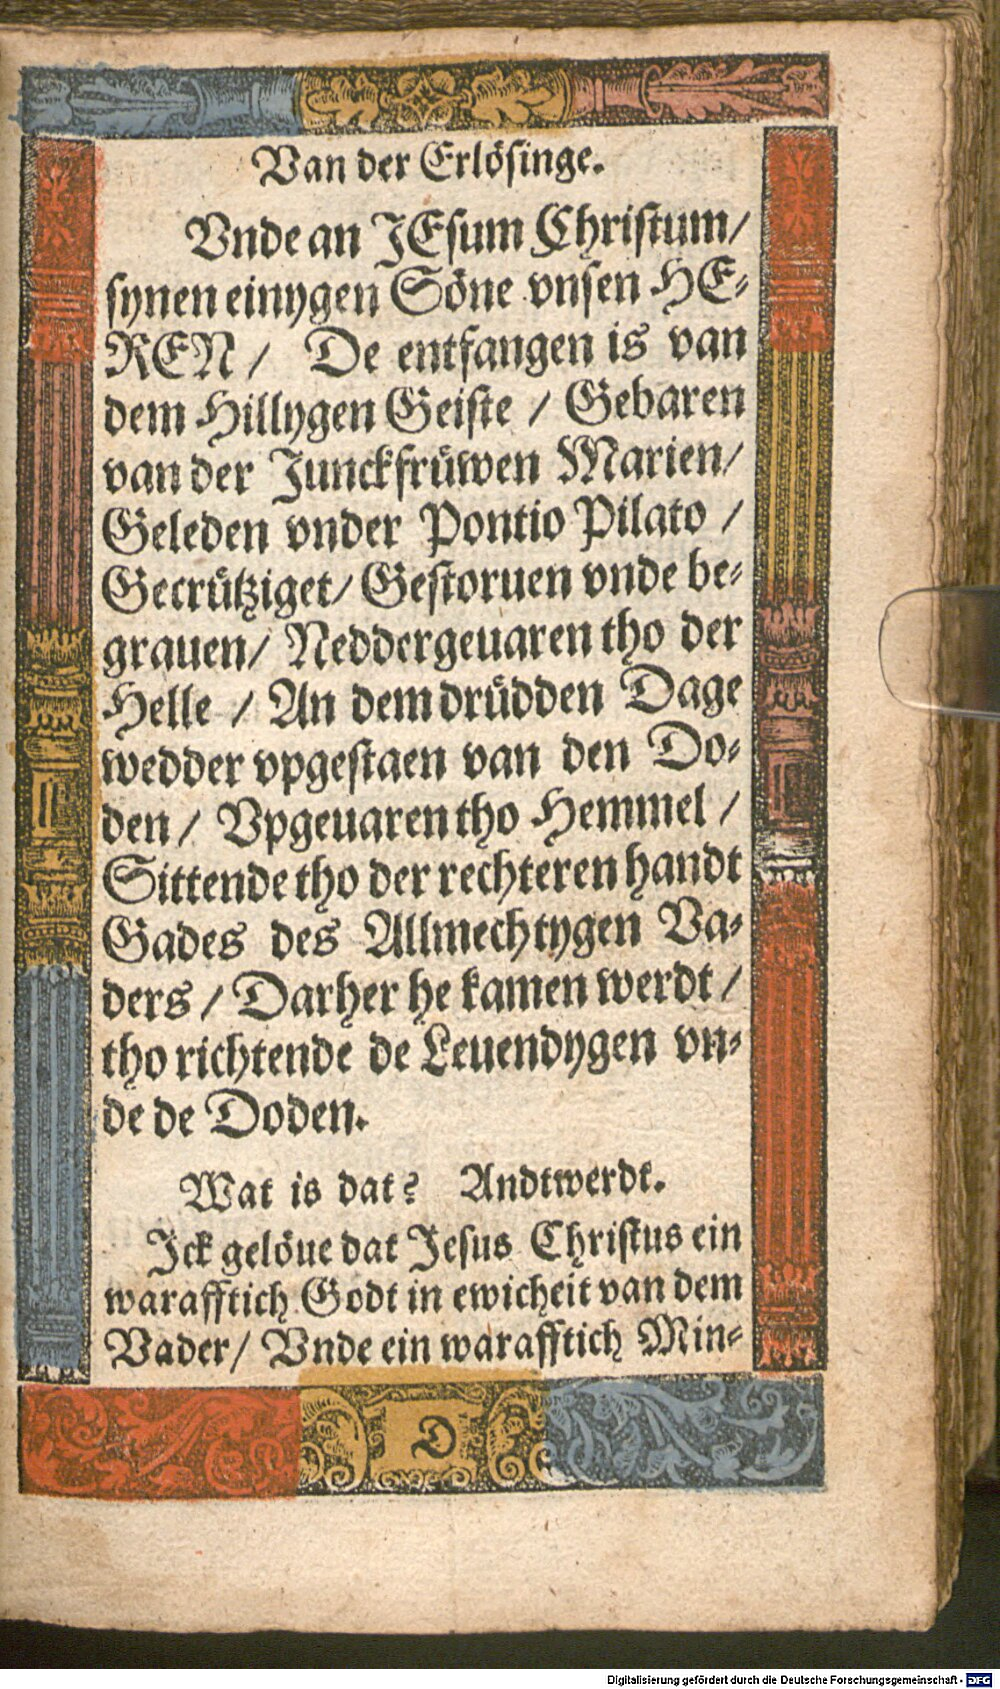 Van der Erlösinge.
Vnde an JEsum Christum/
synen einygen Söne vnsen HE-
REN / De entfangen is van
dem Hillygen Geiste / Gebaren
van der Junckfrüwen Marien/
Geleden vnder Pontio Pilato /
Gecrützîget/ Gestoruen vnde be-
grauen/ Neddergeuaren tho der
Helle / An dem drüdden Dage
wedder vpgestaen van den Do-
den / Vpgeuaren tho Hemmel /
Sittende tho der rechteren handt
Gades des Allmechtygen Va-
ders / Darher he kamen werdt /
tho richtende de Leuendygen vn-
de de Doden.
Wat is dat? Andtwerdt.
Jck gelöue dat Jesus Christus ein
warafftich Godt in ewicheit van dem
Vader/ Vnde ein warafftich Min-
D
Digitalisierung gefördert durch die Deutsche Forschungsgemeinschaft - DFG